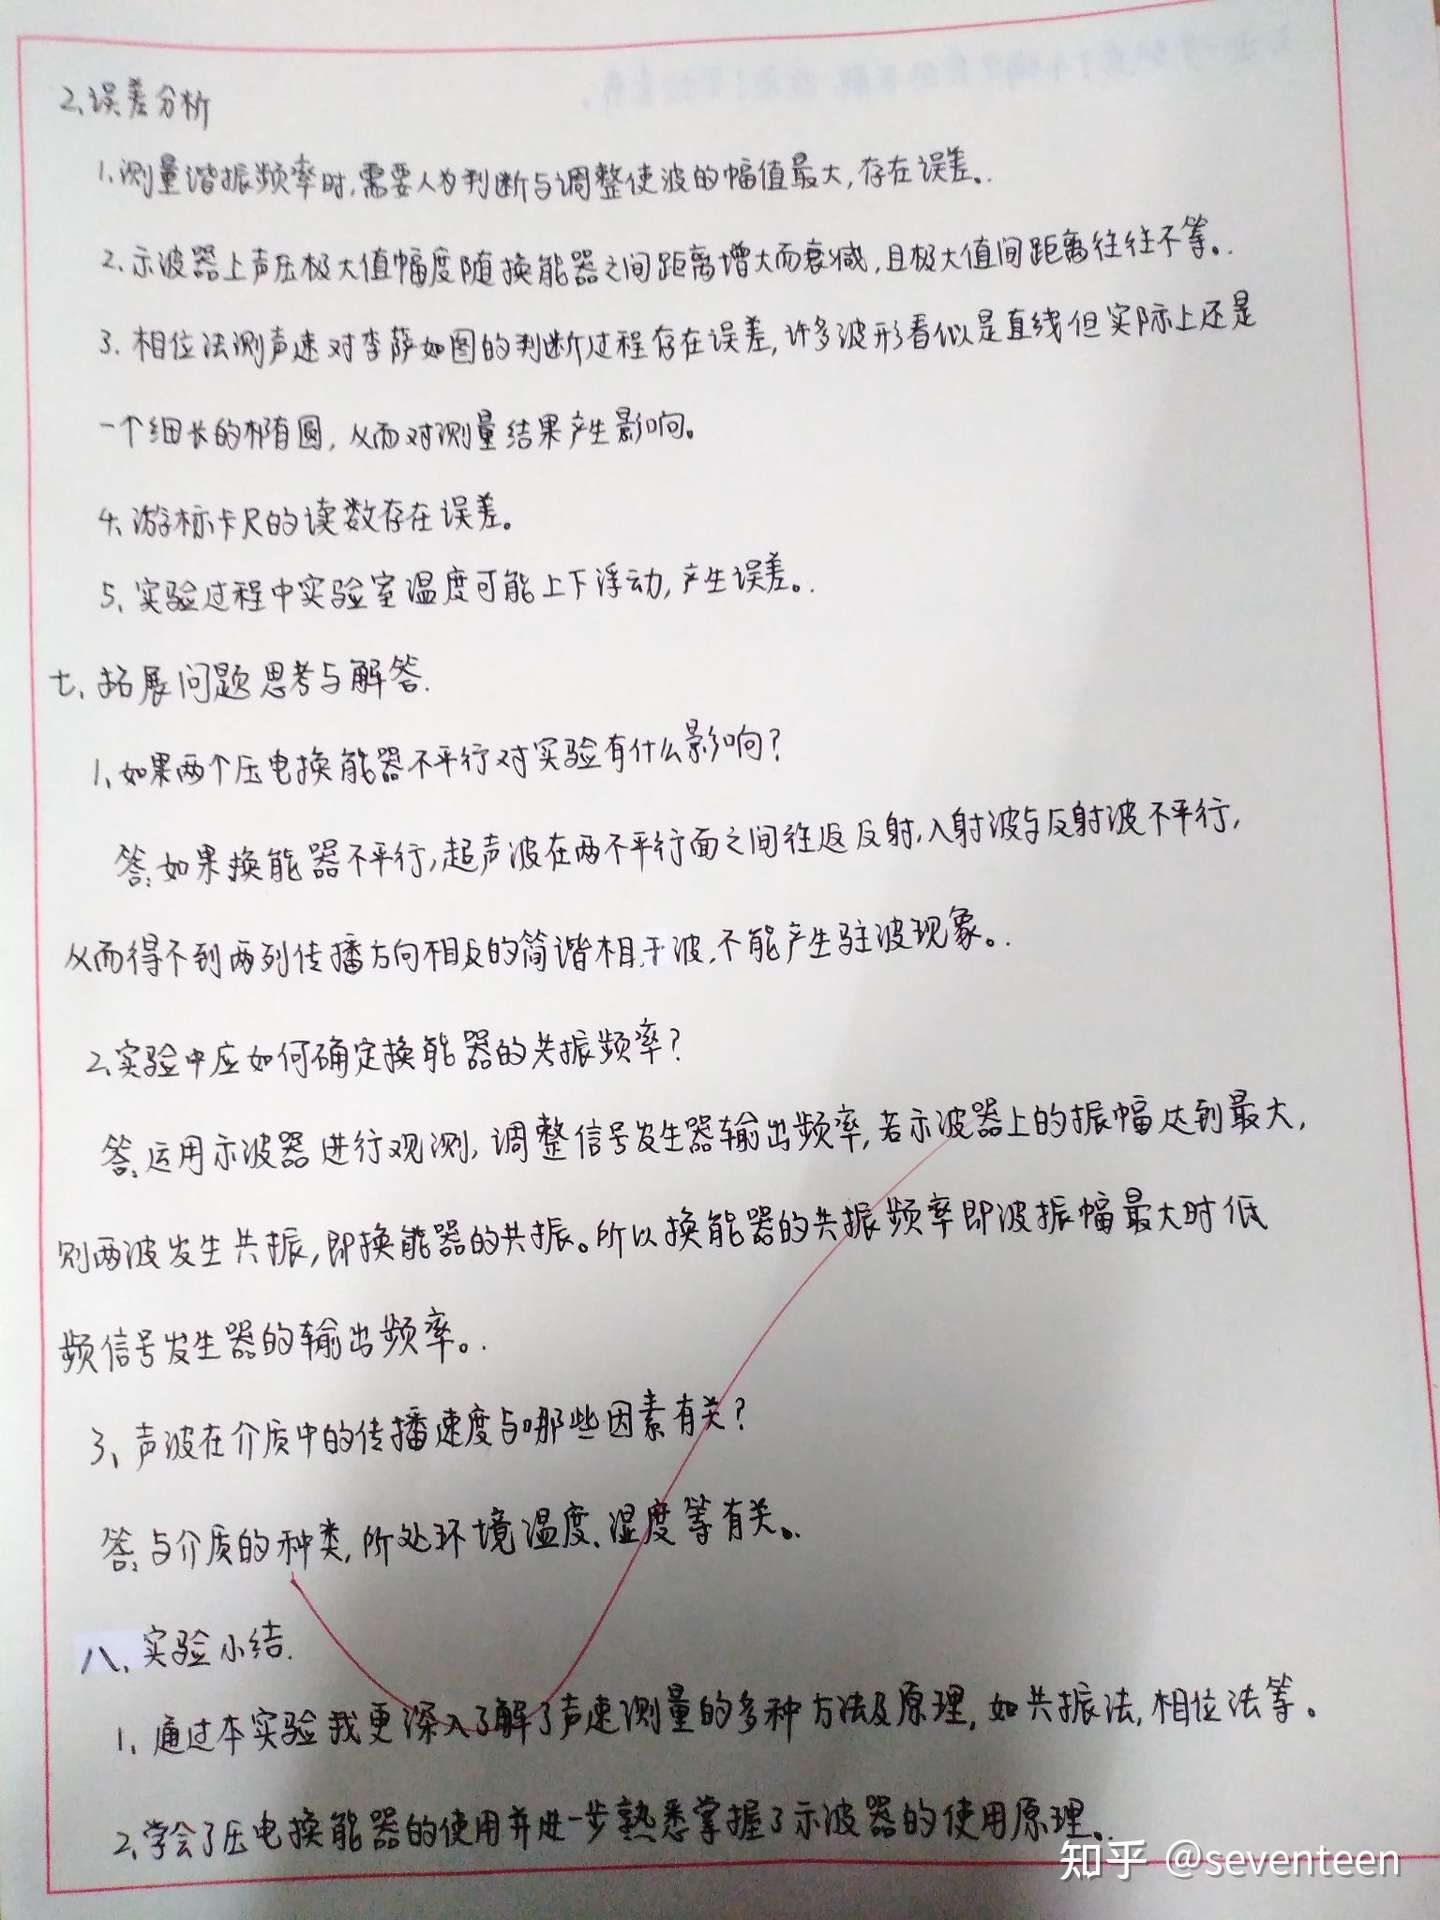 2、误差分析
1、测量谐振频率时,需要人为判断与调整使波的幅值最大,存在误差。
2、示波器上声压极大值幅度随换能器之间距离增大而衰减,且极大值间距离往往不等。
3、相位法测声速对李萨如图的判断过程存在误差,许多波形看似是直线但实际上还是
一个细长的椭圆,从而对测量结果产生影响。
4、游标卡尺的读数存在误差。
5、实验过程中实验室温度可能上下浮动,产生误差。
七、拓展问题思考与解答.
1、如果两个压电换能器不平行对实验有什么影响?
答:如果换能器不平行,超声波在两不平行面之间往返反射,入射波与反射波不平行,
从而得不到两列传播方向相反的简谐相干波,不能产生驻波现象。
2、实验中应如何确定换能器的共振频率?
答:运用示波器进行观测,调整信号发生器输出频率,若示波器上的振幅达到最大,
则两波发生共振,即换能器的共振。所以换能器的共振频率即波振幅最大时低
频信号发生器的输出频率。
3、声波在介质中的传播速度与哪些因素有关?
答:与介质的种类,所处环境温度、湿度等有关。
八、实验小结.
1、通过本实验我更深入了解了声速测量的多种方法及原理,如共振法,相位法等。
2、学会了压电换能器的使用并进一步熟悉掌握了示波器的使用原理。
知乎 @seventeen